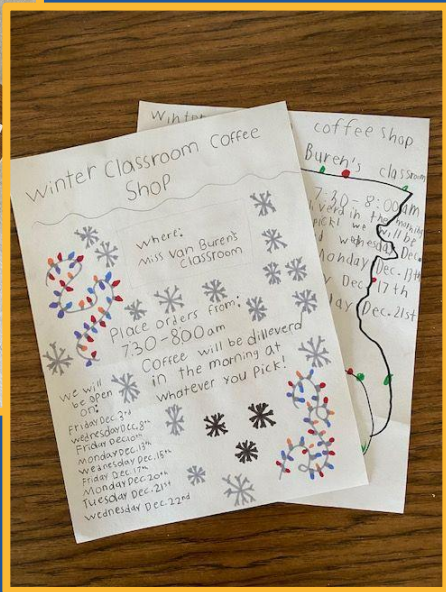 Winter Classroom Coffee
Shop
Where:
Miss Van Buren's
Classroom
Place orders from:
7:30-800am
Coffee will be dilleverd
in the morning at
whatever you pick!
We will
be open
on:
Friday Dec. 3rd
Wednesday Dec. 8th
Friday Dec. 10th
Monday Dec. 13th
Wednesday Dec. 15th
Friday Dec. 17th
Monday Dec. 20th
Tuesday Dec. 21st
Wednesday Dec. 22nd
Winter
coffee shop
Buren's classroom
7:30-8:00am
in the morning
pick! we will be
wednesday Dec.
Monday Dec. 13th
17th
Dec. 21st